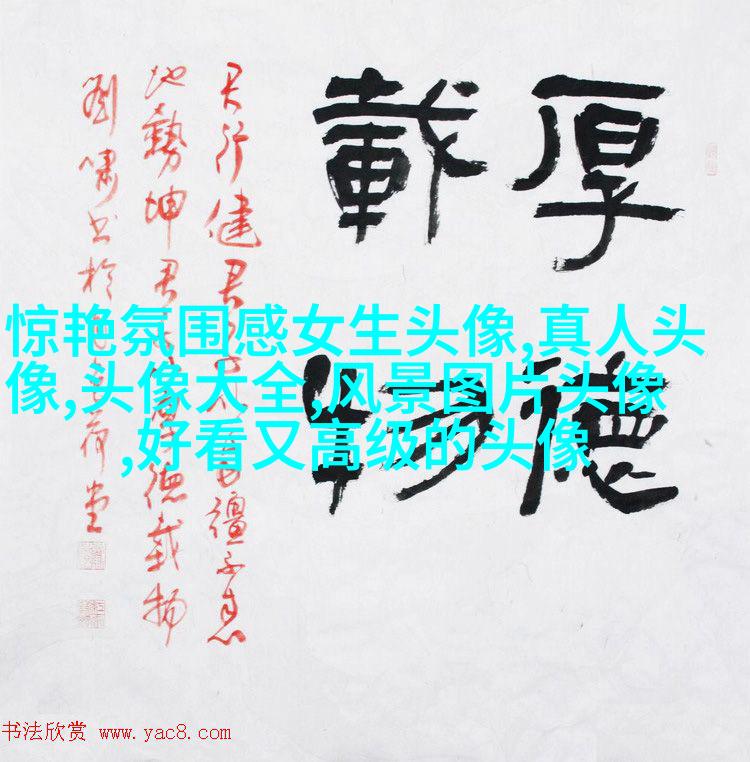 厚德
載物
天行健君子以自彊不息
地勢坤君子以厚德載物
劉嘯书於荷堂
惊艳氛围感女生头像,真人头
像,头像大全,风景图片头像
,好看又高级的头像
书法欣赏 www.yac8.com